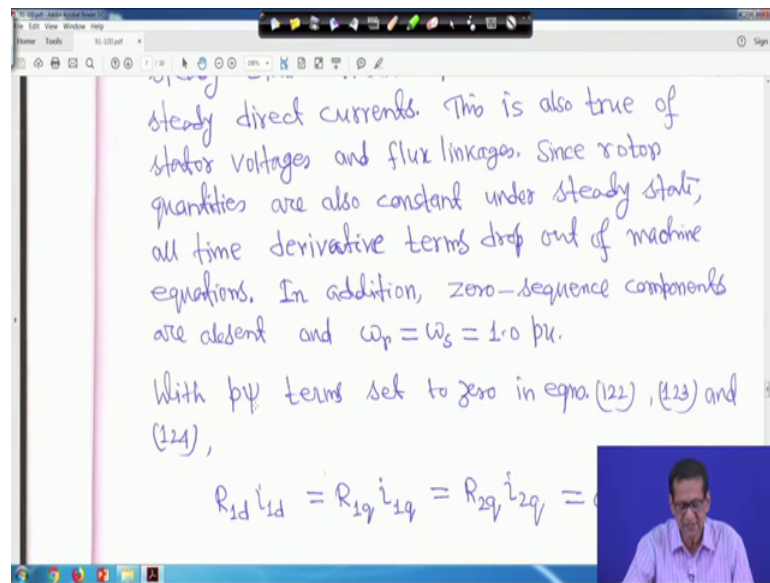 91-100.pdf - Adobe Acrobat Reader DC
File Edit View Window Help
Home Tools 91-100.pdf × Sign
7 / 10
steady direct currents. This is also true of
stator voltages and flux linkages. Since rotor
quantities are also constant under steady state,
all time derivative terms drop out of machine
equations. In addition, zero-sequence components
are absent and ωr = ωs = 1.0 pu.
With pψ terms set to zero in eqn. (122), (123) and
(124),
R1d i1d = R1q i1q = R2q i2q =